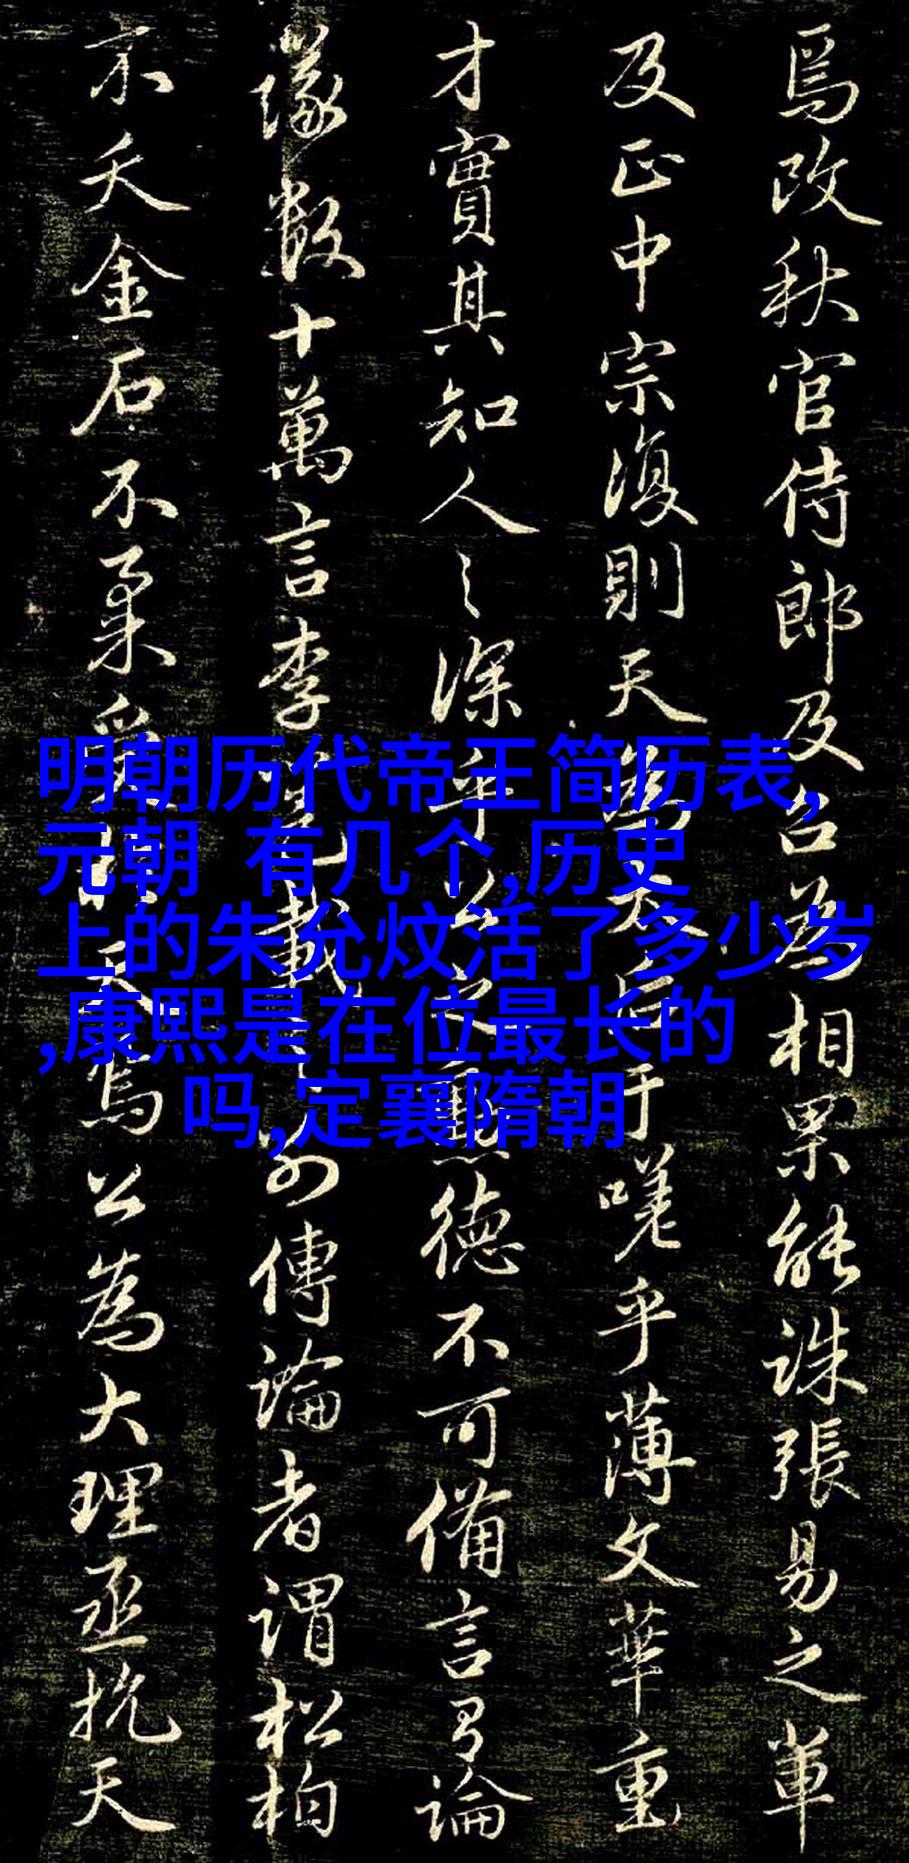 焉改秋官侍郎及召為相果能誅張易之輩
及正中宗復則天為太后于嗟乎薄文華重
才實其知人之深乎公之勳德不可備言有論
議數十萬言李邕載之別傳論者謂松柏
不夭金石不柔受於天焉公為大理丞抗天
明朝历代帝王简历表,
元朝 有几个,历史
上的朱允炆活了多少岁
,康熙是在位最长的
吗,定襄隋朝